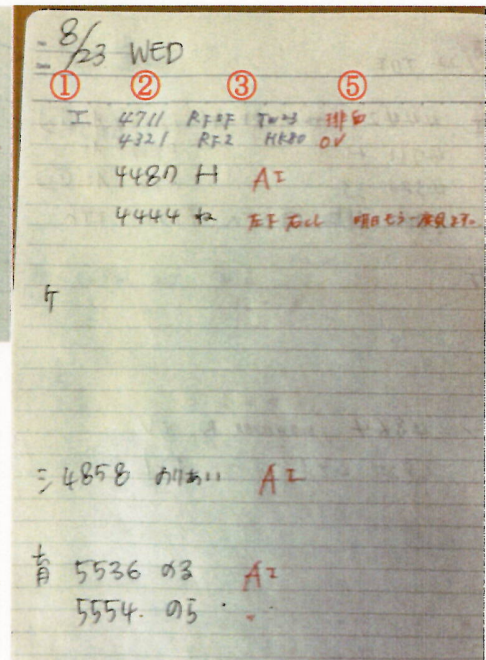 8/23 WED
① ② ③ ⑤
エ 4711 RFSF TW23 排白
4321 RF2 HK80 OV
4487 H AI
4444 ね 左下 右CL 明日もう一度見ます。
ケ
シ 4858 のりあい AI
育 5536 のる AI
5554. のら 〃